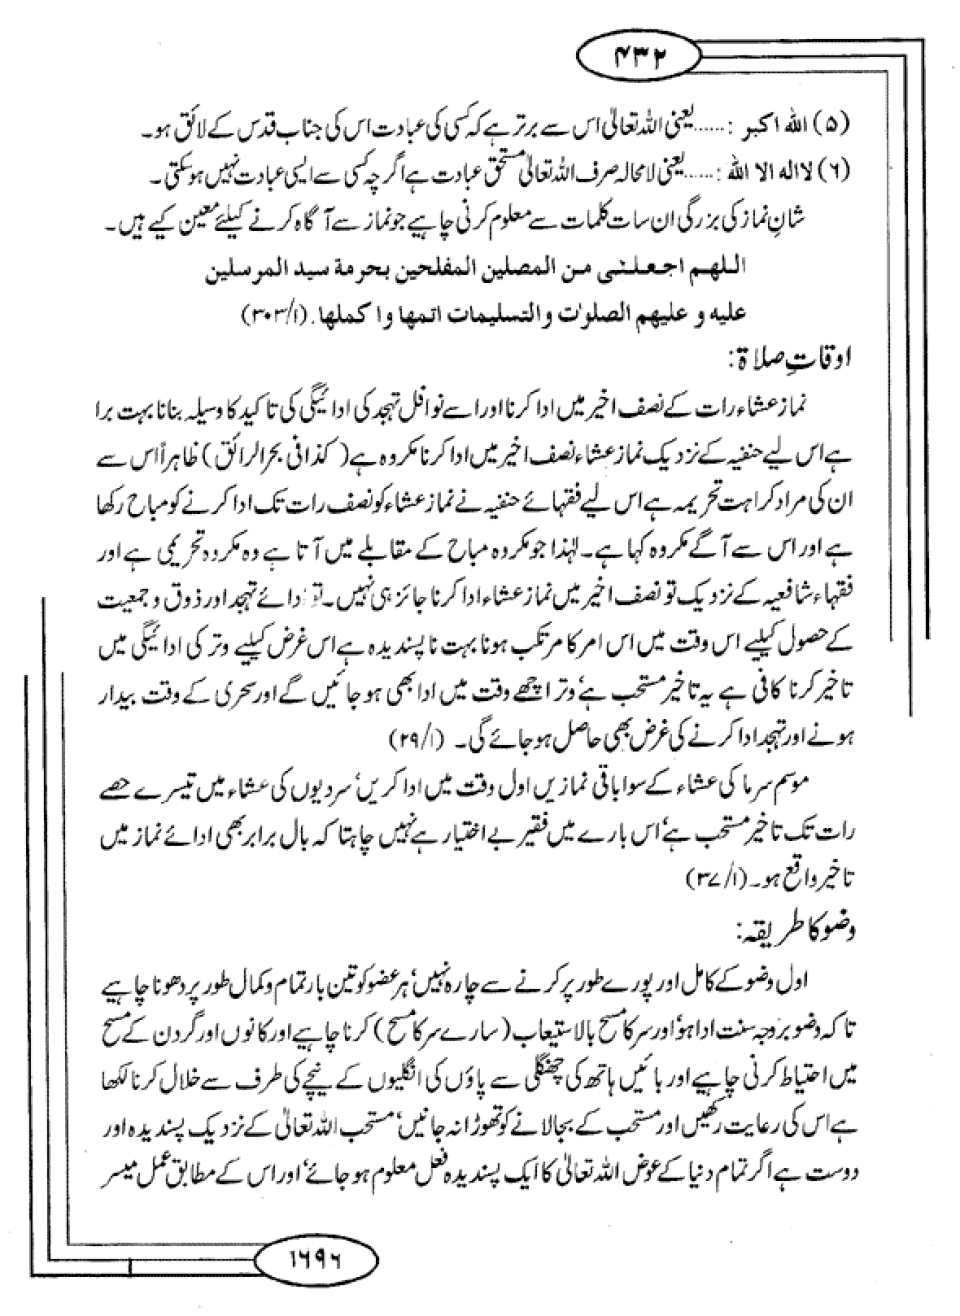 ۴۳۲
(۵) اللہ اکبر :......یعنی اللہ تعالیٰ اس سے برتر ہے کہ کسی کی عبادت اس کی جناب قدس کے لائق ہو۔
(۶) لا الہ الا اللہ :......یعنی لامحالہ صرف اللہ تعالیٰ مستحق عبادت ہے اگرچہ کسی سے ایسی عبادت نہیں ہوسکتی۔
شانِ نماز کی بزرگی ان سات کلمات سے معلوم کرنی چاہیے جو نماز سے آگاہ کرنے کیلئے معین کیے ہیں۔
اللهم اجعلنى من المصلين المفلحين بحرمة سيد المرسلين
عليه و عليهم الصلوٰت والتسليمات اتمها واكملها. (۳۰۳/۱)
اوقاتِ صلاۃ:
نماز عشاء رات کے نصف اخیر میں ادا کرنا اور اسے نوافل تہجد کی ادائیگی کی تاکید کا وسیلہ بنانا بہت برا
ہے اس لیے حنفیہ کے نزدیک نماز عشاء نصف اخیر میں ادا کرنا مکروہ ہے (کذا فی بحر الرائق) ظاہراً اس سے
ان کی مراد کراہت تحریمہ ہے اس لیے فقہائے حنفیہ نے نماز عشاء کو نصف رات تک ادا کرنے کو مباح رکھا
ہے اور اس سے آگے مکروہ کہا ہے۔ لہٰذا جو مکروہ مباح کے مقابلے میں آتا ہے وہ مکروہ تحریمی ہے اور
فقہاء شافعیہ کے نزدیک تو نصف اخیر میں نماز عشاء ادا کرنا جائز ہی نہیں۔ تو ادائے تہجد اور ذوق و جمعیت
کے حصول کیلیے اس وقت میں اس امر کا مرتکب ہونا بہت ناپسندیدہ ہے اس غرض کیلیے وتر کی ادائیگی میں
تاخیر کرنا کافی ہے یہ تاخیر مستحب ہے، وتر اچھے وقت میں ادا بھی ہو جائیں گے اور سحری کے وقت بیدار
ہونے اور تہجد ادا کرنے کی غرض بھی حاصل ہو جائے گی۔ (۲۹/۱)
موسم سرما کی عشاء کے سوا باقی نمازیں اول وقت میں ادا کریں، سردیوں کی عشاء میں تیسرے حصے
رات تک تاخیر مستحب ہے، اس بارے میں فقیر بے اختیار ہے نہیں چاہتا کہ بال برابر بھی ادائے نماز میں
تاخیر واقع ہو۔ (۳۷/۱)
وضو کا طریقہ:
اول وضو کے کامل اور پورے طور پر کرنے سے چارہ نہیں، ہر عضو کو تین بار تمام و کمال طور پر دھونا چاہیے
تاکہ وضو بروجہ سنت ادا ہو، اور سر کا مسح بالاستیعاب (سارے سر کا مسح) کرنا چاہیے اور کانوں اور گردن کے مسح
میں احتیاط کرنی چاہیے اور بائیں ہاتھ کی چھنگلی سے پاؤں کی انگلیوں کے نیچے کی طرف سے خلال کرنا لکھا
ہے اس کی رعایت رکھیں اور مستحب کے بجالانے کو تھوڑا نہ جانیں، مستحب اللہ تعالیٰ کے نزدیک پسندیدہ اور
دوست ہے اگر تمام دنیا کے عوض اللہ تعالیٰ کا ایک پسندیدہ فعل معلوم ہو جائے، اور اس کے مطابق عمل میسر
۱۶۹۶